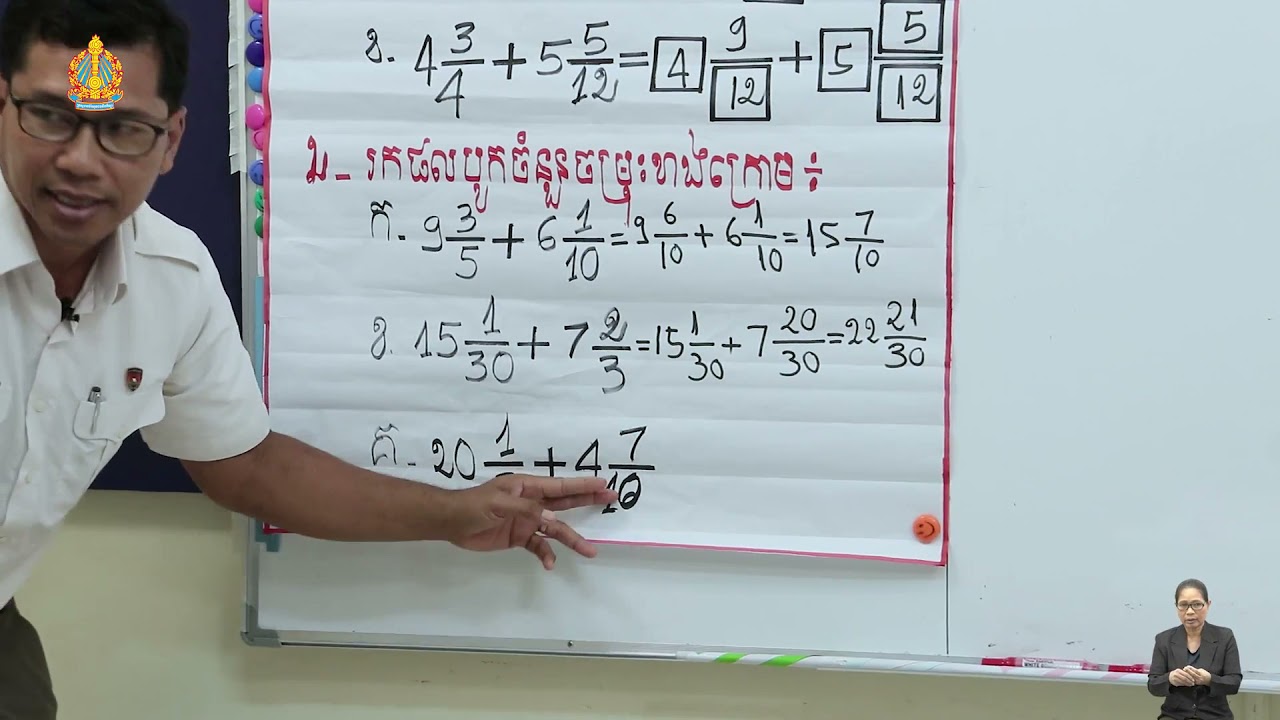 ខ. 4 3/4 + 5 5/12 = 4 9/12 + 5 5/12
២- រកផលបូកចំនួនចម្រុះខាងក្រោម ÷
ក. 9 3/5 + 6 1/10 = 9 6/10 + 6 1/10 = 15 7/10
ខ. 15 1/30 + 7 2/3 = 15 1/30 + 7 20/30 = 22 21/30
គ. 20 1/ + 4 7/10